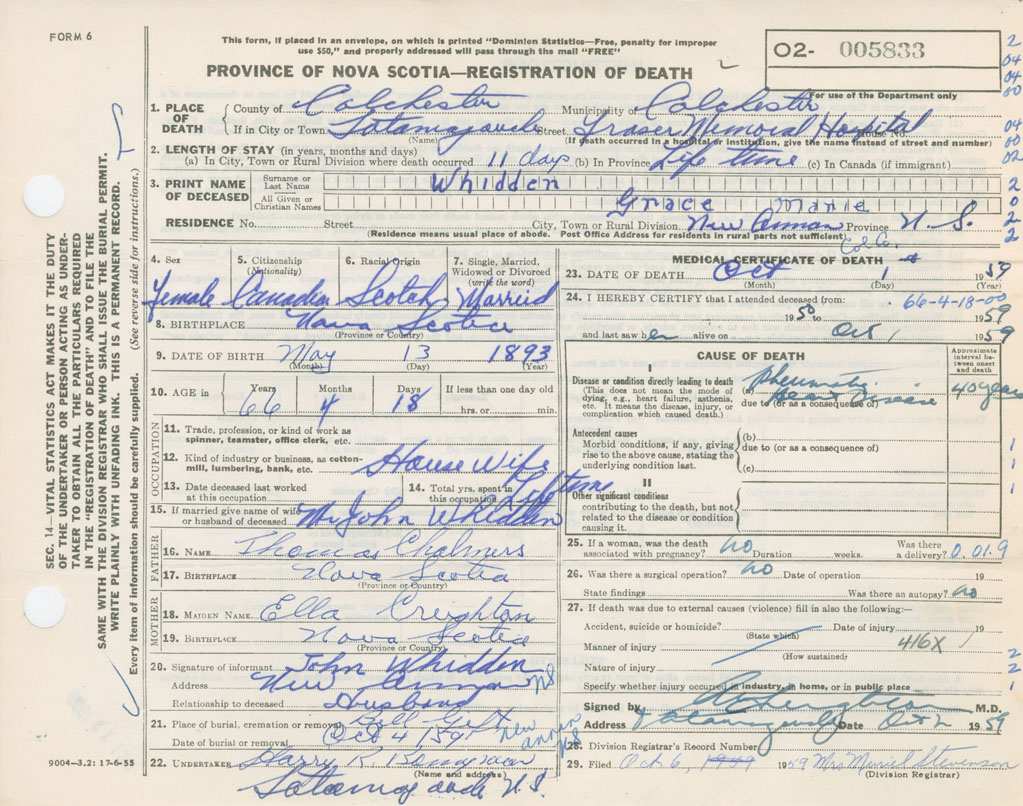 FORM 6
This form, if placed in an envelope, on which is printed "Dominion Statistics—Free, penalty for improper
use $50," and properly addressed will pass through the mail "FREE"
PROVINCE OF NOVA SCOTIA—REGISTRATION OF DEATH
O2- 005833
For use of the Department only
SEC. 14—VITAL STATISTICS ACT MAKES IT THE DUTY
OF THE UNDERTAKER OR PERSON ACTING AS UNDER-
TAKER TO OBTAIN ALL THE PARTICULARS REQUIRED
IN THE "REGISTRATION OF DEATH" AND TO FILE THE
SAME WITH THE DIVISION REGISTRAR WHO SHALL ISSUE THE BURIAL PERMIT.
WRITE PLAINLY WITH UNFADING INK. THIS IS A PERMANENT RECORD.
Every item of information should be carefully supplied. (See reverse side for instructions.)
1. PLACE OF DEATH County of Colchester Municipality of Colchester
If in City or Town Tatamagouche Street Fraser Memorial Hospital House No.
(Name) (If death occurred in a hospital or institution, give the name instead of street and number)
2. LENGTH OF STAY (in years, months and days)
(a) In City, Town or Rural Division where death occurred 11 days (b) In Province Life time (c) In Canada (if immigrant)
3. PRINT NAME OF DECEASED Surname or Last Name Whidden
All Given or Christian Names Grace Marie
RESIDENCE No. Street City, Town or Rural Division New Annan Province N.S.
(Residence means usual place of abode. Post Office Address for residents in rural parts not sufficient) Col Co.
4. Sex 5. Citizenship (Nationality) 6. Racial Origin 7. Single, Married, Widowed or Divorced (write the word)
Female Canadian Scotch Married
8. BIRTHPLACE Nova Scotia
(Province or Country)
9. DATE OF BIRTH May 13 1893
(Month) (Day) (Year)
10. AGE in Years Months Days If less than one day old
66 4 18 hrs. or min.
OCCUPATION
11. Trade, profession, or kind of work as
spinner, teamster, office clerk, etc.
12. Kind of industry or business, as cotton-
mill, lumbering, bank, etc. House Wife
13. Date deceased last worked
at this occupation
14. Total yrs. spent in
this occupation Lifetime
15. If married give name of wife
or husband of deceased Mr John Whidden
FATHER
16. NAME Thomas Chalmers
17. BIRTHPLACE Nova Scotia
(Province or Country)
MOTHER
18. MAIDEN NAME Ella Creighton
19. BIRTHPLACE Nova Scotia
(Province or Country)
20. Signature of informant John Whidden
Address New Annan NS
Relationship to deceased Husband
21. Place of burial, cremation or removal New Annan NS
Date of burial or removal Oct 4/59
22. UNDERTAKER Harry R.
(Name and address)
Tatamagouche N.S.
9004—3.2: 17-6-55
MEDICAL CERTIFICATE OF DEATH
23. DATE OF DEATH Oct 1 1959
(Month) (Day) (Year)
24. I HEREBY CERTIFY that I attended deceased from: 66-4-18-00
1950 to 1959
and last saw her alive on Oct 1 1959
CAUSE OF DEATH
Approximate interval between onset and death
I
Disease or condition directly leading to death
(This does not mean the mode of
dying, e.g., heart failure, asthenia,
etc. It means the disease, injury, or
complication which caused death.)
(a) Rheumatic Heart Disease 40 years
due to (or as a consequence of)
Antecedent causes
Morbid conditions, if any, giving
rise to the above cause, stating the
underlying condition last.
(b)
due to (or as a consequence of)
(c)
II
Other significant conditions
contributing to the death, but not
related to the disease or condition
causing it.
25. If a woman, was the death
associated with pregnancy? no Duration weeks. Was there
a delivery? 0.01.9
26. Was there a surgical operation? no Date of operation 19
State findings Was there an autopsy? no
27. If death was due to external causes (violence) fill in also the following:—
Accident, suicide or homicide? Date of injury 19
(State which)
Manner of injury 416X
(How sustained)
Nature of injury
Specify whether injury occurred in industry, in home, or in public place
Signed by M.D.
Address Tatamagouche Date Oct 2 1959
28. Division Registrar's Record Number
29. Filed Oct 6, 1959 Mrs Muriel Stevenson
(Division Registrar)
2
04
04
00
04
00
02
2
0
2
2
1
1
1
2
2
1